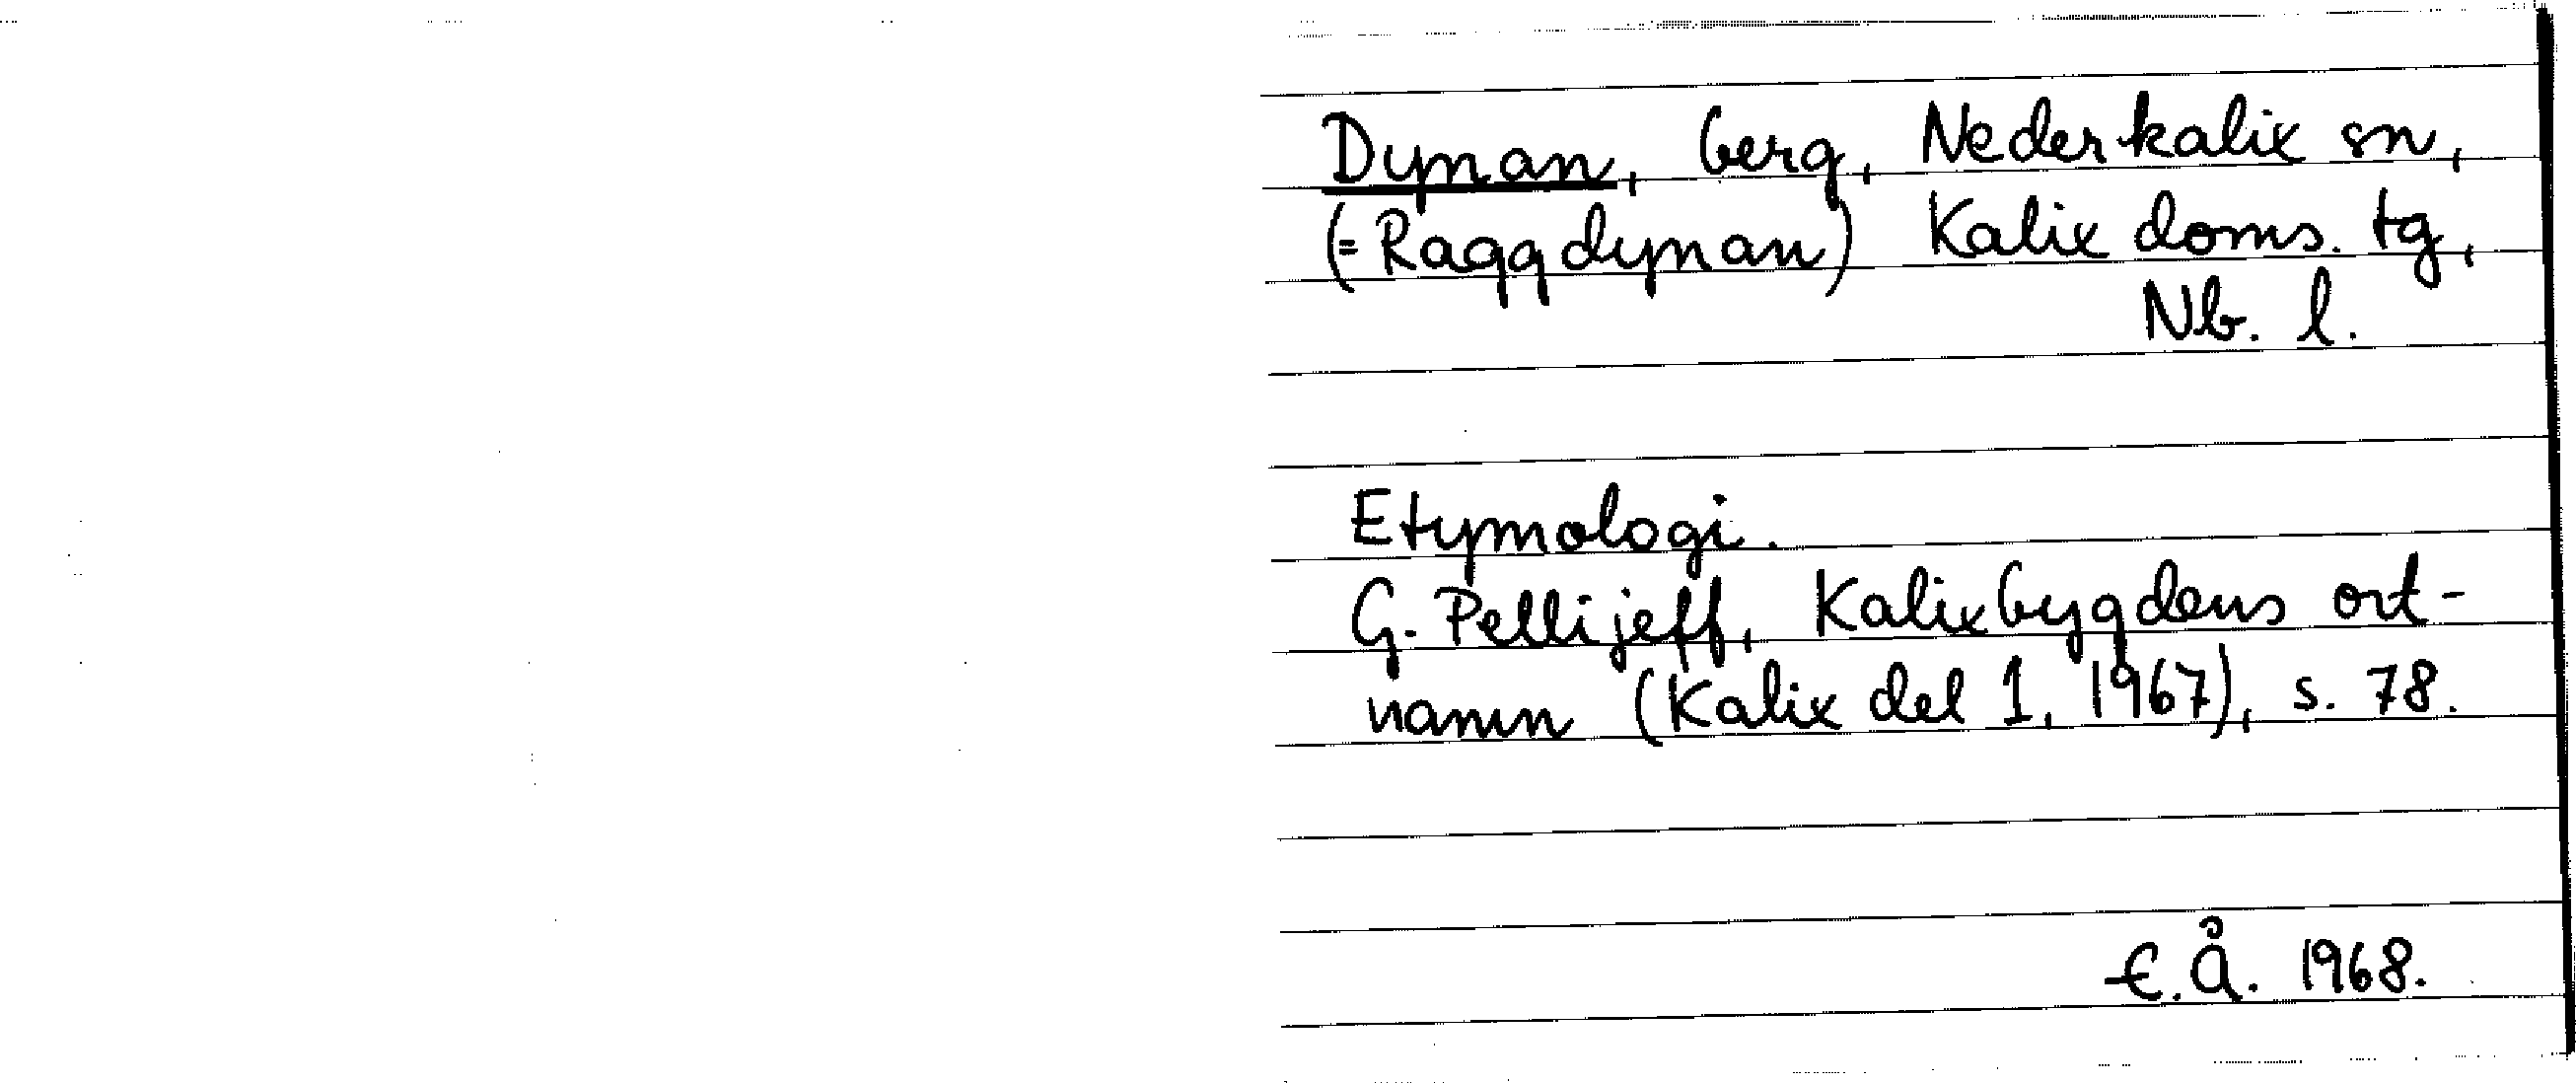 Dynan, berg, Nederkalix sn,
(= Raggdynan) Kalix doms. tg,
Nb. l.
Etymologi.
G. Pellijeff, Kalixbygdens ort-
namn (Kalix del 1, 1967), s. 78.
E.Å. 1968.